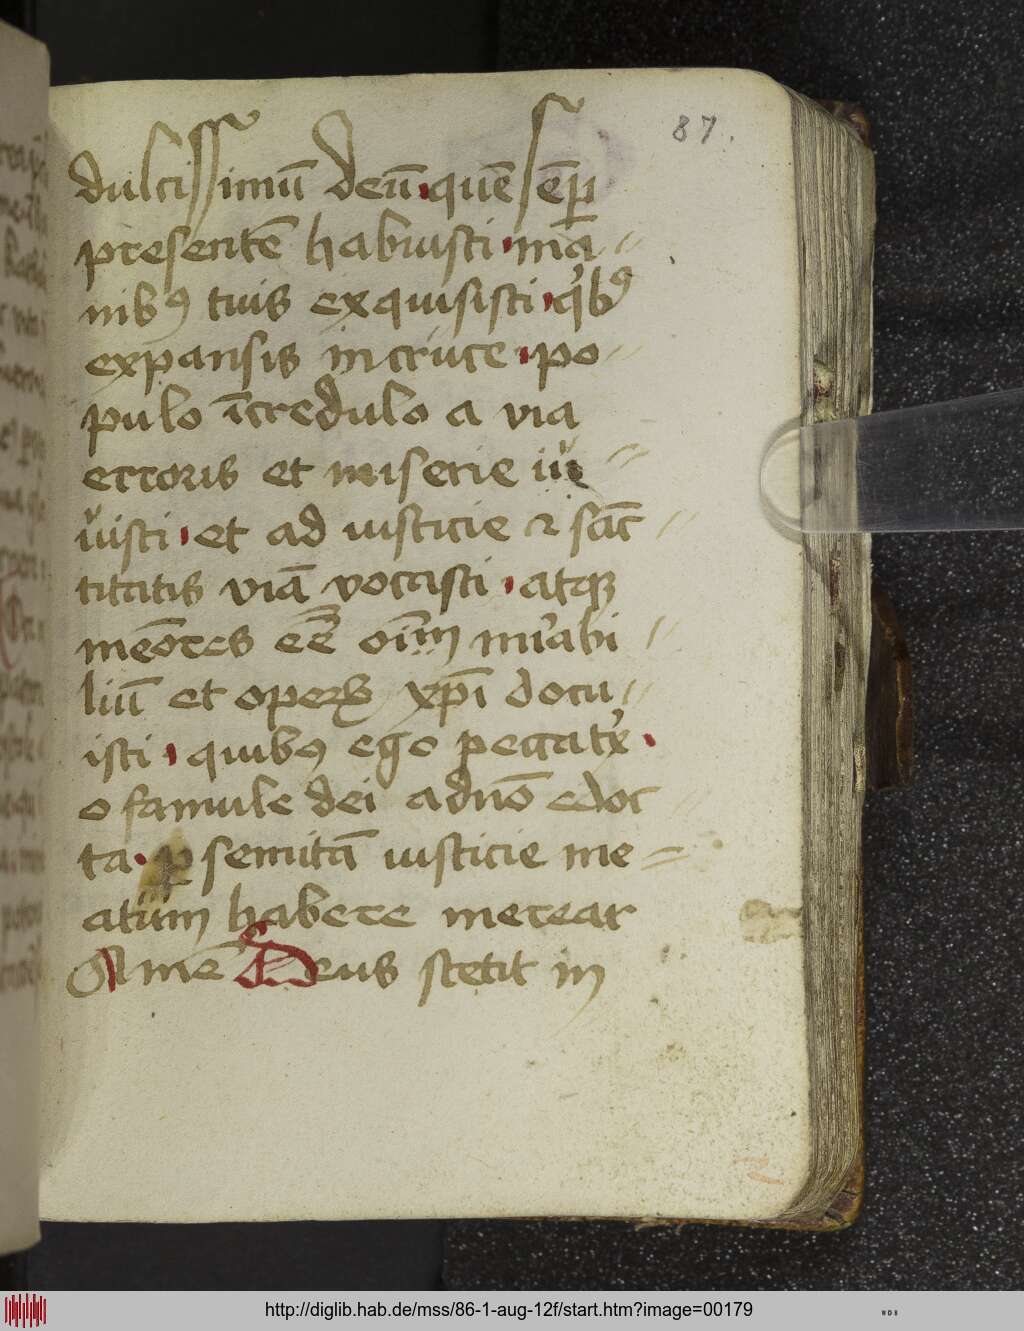 87.
dulcissimū deū quē sēp
presentē habuisti mā
nibꝰ tuis exquisisti qͥbꝰ
expansis in cruce po
pulo īcredulo a via
erroris et miserie
uisti et ad iusticie ⁊ sāc
titatis viā vocasti atqꝫ
meōres eē oīm mirabi
liū et operꝝ xp̄i docu
isti quibꝰ ego peccatͬx
o famule dei ad nō edoc
ta ꝑ semitā iusticie me
atum habere merear
Amē Deus stetit in
http://diglib.hab.de/mss/86-1-aug-12f/start.htm?image=00179